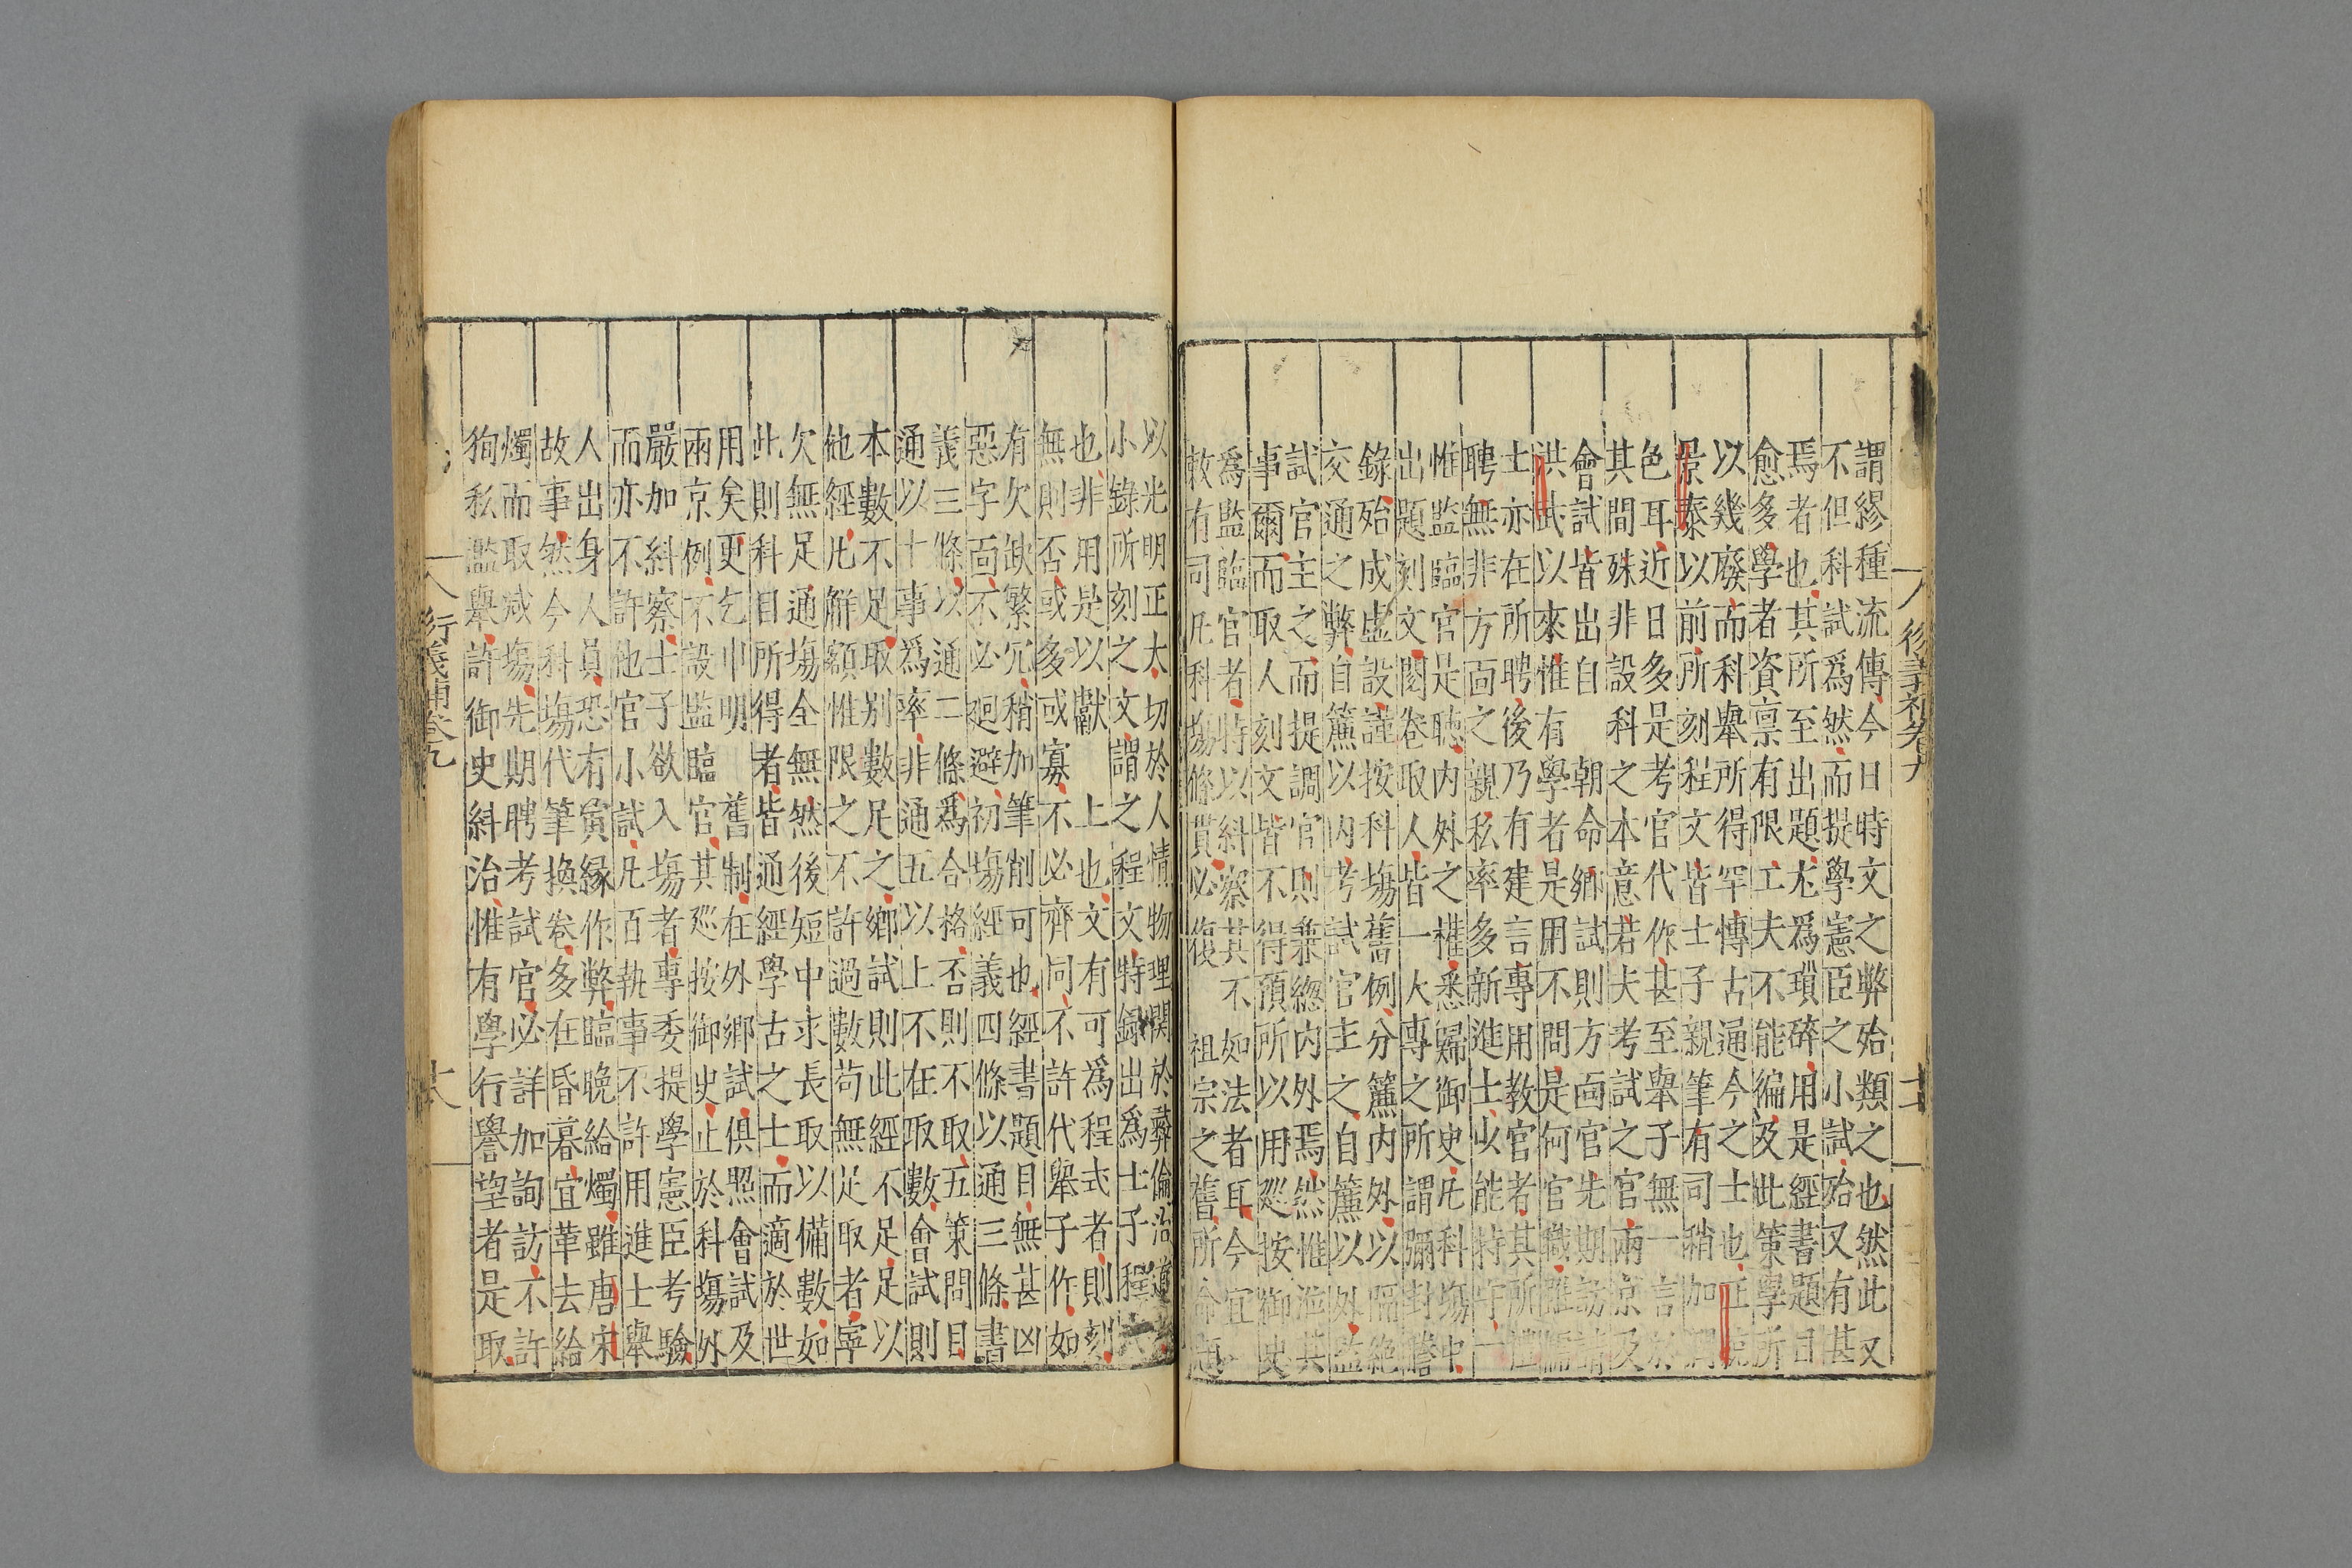 謂繆種流傳今日時文之弊殆類之也然此又
不但科試爲然而提學憲臣之小試殆又有甚
焉者也其所至出題尤爲瑣碎用是經書題目
愈多學者資禀有限工夫不能徧及此策學所
以幾廢而科舉所得罕博古通今之士也正統
景泰以前所刻程文皆士子親筆有司稍加潤
色耳近日多是考官代作甚至舉子無一言於
其間殊非設科之本意若夫考試之官兩京及
會試皆出自 朝命鄉試則方面官先期訪請
洪武以來惟有學者是用不問是何官職雖儒
士亦在所聘後乃有建言專用教官者其所
聘無非方面之親私率多新進士以能持守一
惟監臨官是聴内外之權悉歸御史凡科塲中
出題刻文閱卷取人皆一人專之所謂彌封謄
錄殆成虚設謹按科塲舊例分簾内外以隔絶
交通之弊自簾以内考試官主之自簾以外監
試官主之而提調官則兼緫内外焉然惟涖其
事爾而取人刻文皆不得預所以用廵按御史
爲監臨官者特以糾察其不如法者耳今宜
敕有司凡科塲條貫必復 祖宗之舊所命題
衍義補卷九
以光明正大切於人情物理關於彝倫治道者
小錄所刻之文謂之程文特録出爲士子程
也非用是以獻 上也文有可爲程式者則刻
無則否或多或寡不必齊同不許代舉子作如
有欠缺繁冗稍加筆削可也經書題目無甚凶
惡字面不必廻避初塲經義四條以通三條書
義三條以通二條爲合格否則不取五策問目
通以十事爲率非通五以上不在取數會試則
本數不足取别數足之鄉試則此經不足足以
他經凡觧額惟限之不許過數苟無足取者寧
欠無足通塲全無然後短中求長取以備數如
此則科目所得者皆通經學古之士而適於世
用矣更乞申明 舊制在外鄉試俱照會試及
兩京例不設監臨官其廵按御史止於科塲外
嚴加糾察士子欲入塲者專委提學憲臣考驗
而亦不許他官小試凡百執事不許用進士舉
人出身人員恐有夤緣作弊臨晩給燭雖唐宋
故事然今科塲代筆換卷多在昏暮宜革去給
燭而取减塲先期聘考試官必詳加詢訪不許
狥私濫舉許御史糾治惟有學行譽望者是取